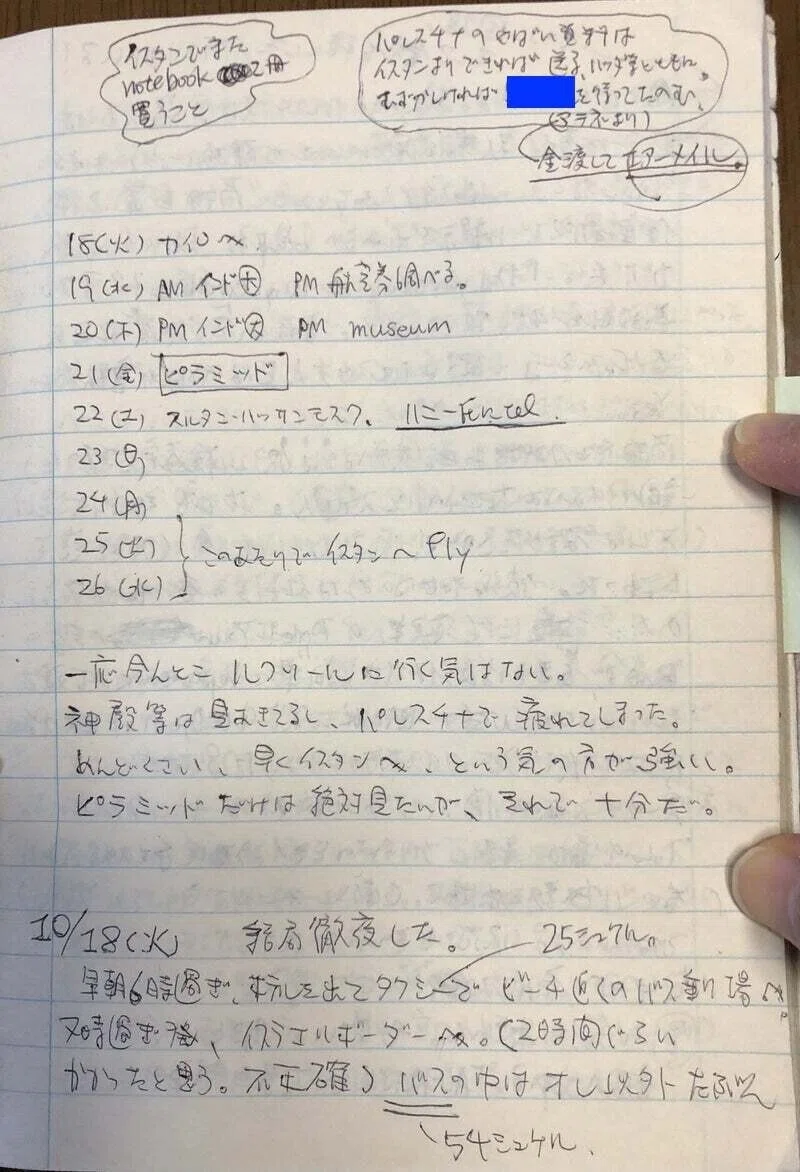 イスタンでまた
notebook 2冊
買うこと
パレスチナのやばい資料は
イスタンよりできれば 送る、ハッダ等とともに。
むずかしければ を待ってたのむ、
(アテネより)
金渡してエアーメイル。
18(火) カイロへ
19(水) AM インド大 PM 航空券調べる。
20(木) PM インド大 PM museum
21(金) ピラミッド
22(土) スルタン・ハッサンモスク、 ハニーfに tel.
23(日)
24(月)
25(火) このあたりで イスタンへ fly
26(水)
一応今んとこ ルクソールに行く気はない。
神殿等は見あきてるし、パレスチナで 疲れてしまった。
めんどくさい、早くイスタンへ、という気の方が強い。
ピラミッドだけは絶対見たいが、それで十分だ。
10/18(火) 結局徹夜した。 25シュケル。
早朝6時過ぎ、宿を出てタクシーで ビーチ近くのバス乗り場へ。
7時過ぎ発、イスラエルボーダーへ。(2時間ぐらい
かかったと思う。不正確) バスの中はオレ以外たぶん
54シュケル.